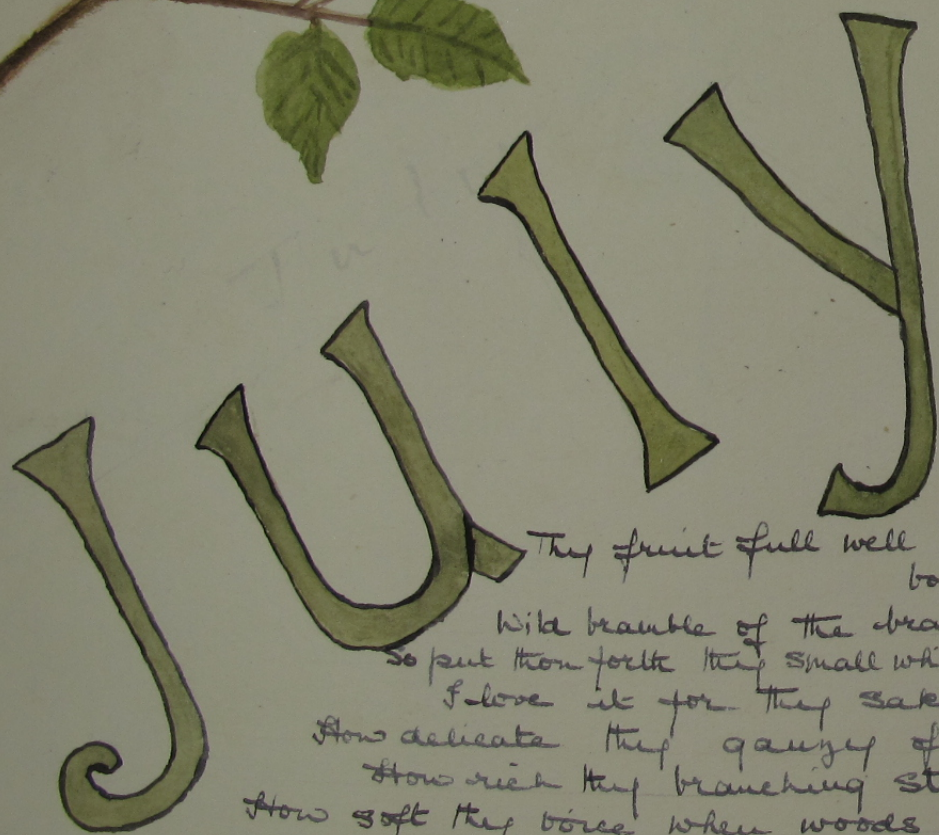 July
Thy fruit full well
bo
Wild bramble of the bra
So put thou forth thy small whi
I love it for thy sak
How delicate thy gauzy of
How rich thy branching st
How soft thy voice when woods